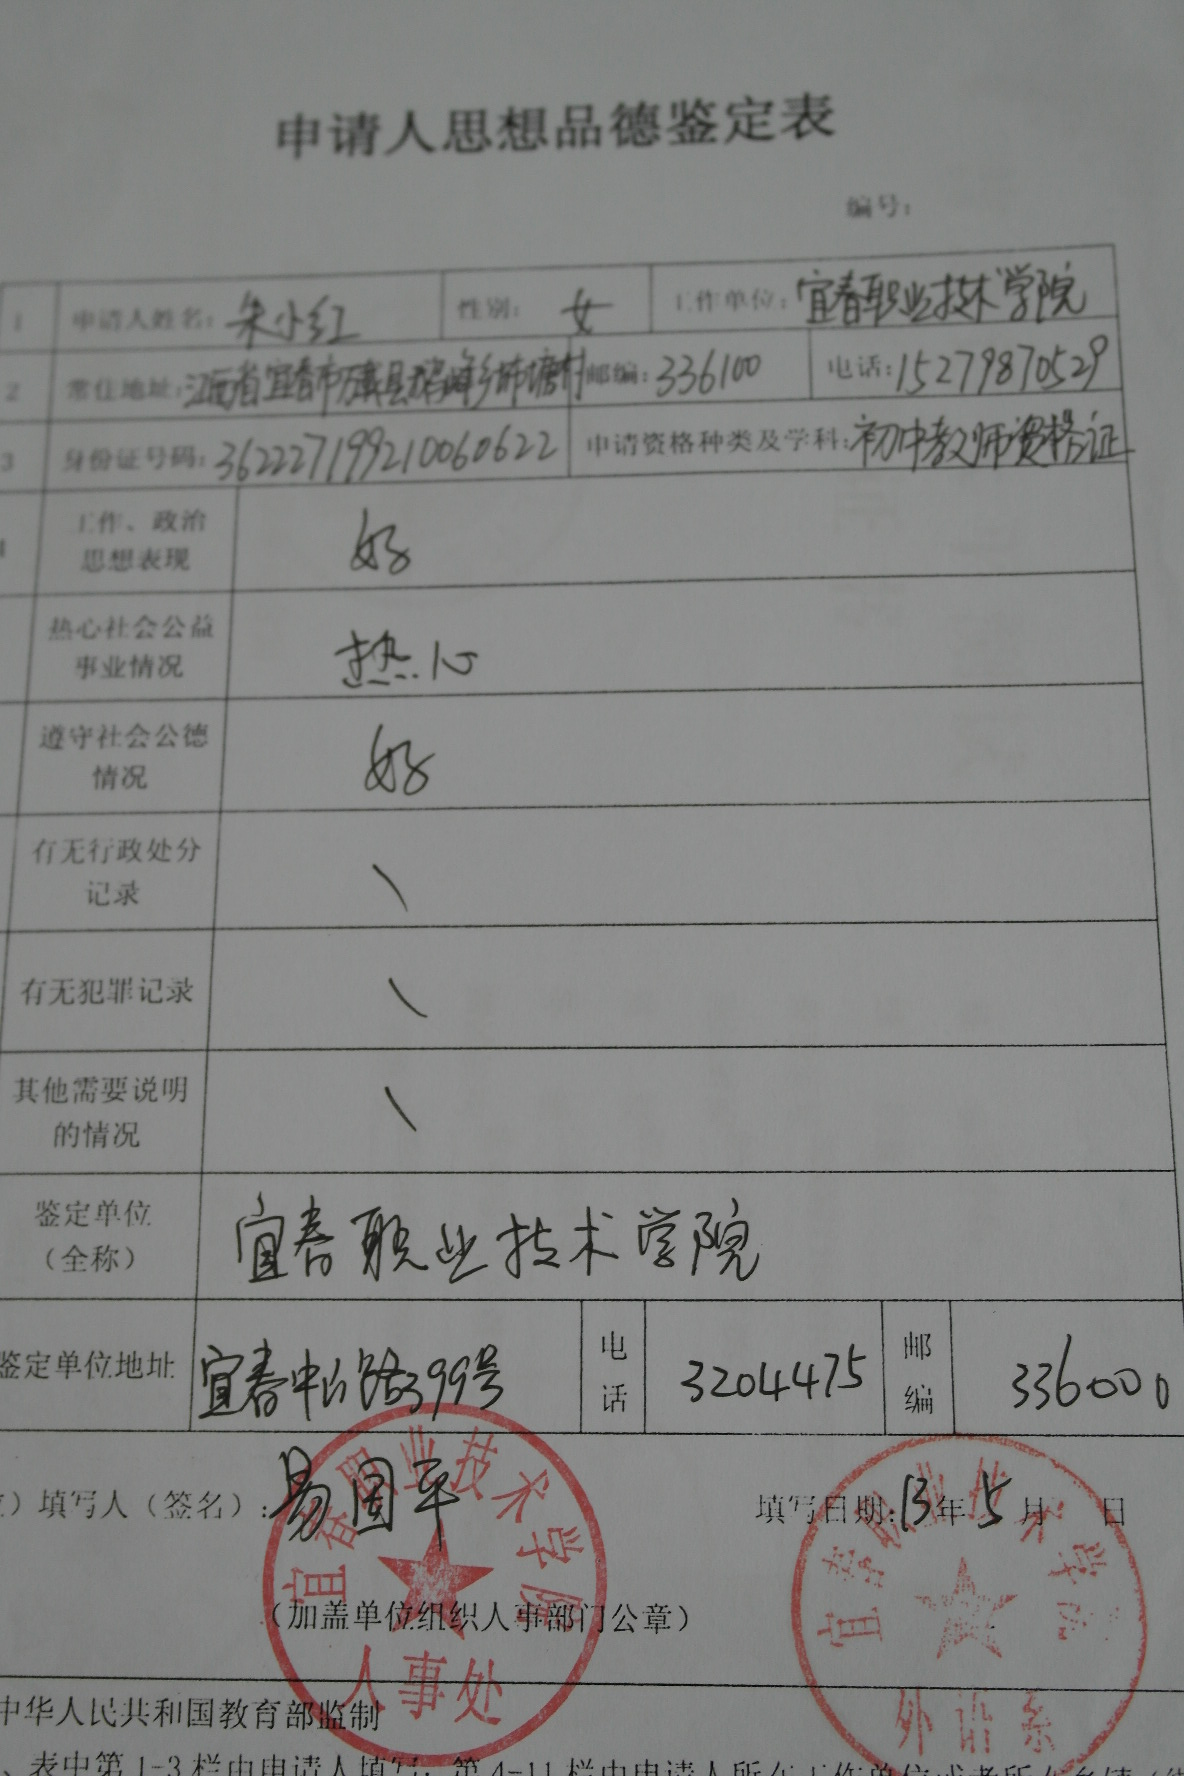 申请人思想品德鉴定表
编号:
1 申请人姓名: 朱小红 性别: 女 工作单位: 宜春职业技术学院
2 常住地址: 江西省宜春市万载县 乡 塘村 邮编: 336100 电话: 15279870529
3 身份证号码: 362227199210060622 申请资格种类及学科: 初中教师资格证
4 工作、政治
思想表现 好
热心社会公益
事业情况 热心
遵守社会公德
情况 好
有无行政处分
记录 \
有无犯罪记录 \
其他需要说明
的情况 \
鉴定单位
(全称) 宜春职业技术学院
鉴定单位地址 宜春中山路399号 电话 3204475 邮编 336000
)填写人(签名): 易国平 填写日期: 13年5月 日
(加盖单位组织人事部门公章)
宜春职业技术学院
人事处
宜春职业技术学院
外语系
中华人民共和国教育部监制
、表中第1-3栏由申请人填写; 第4-11栏由申请人所在工作单位或者所在乡镇(街